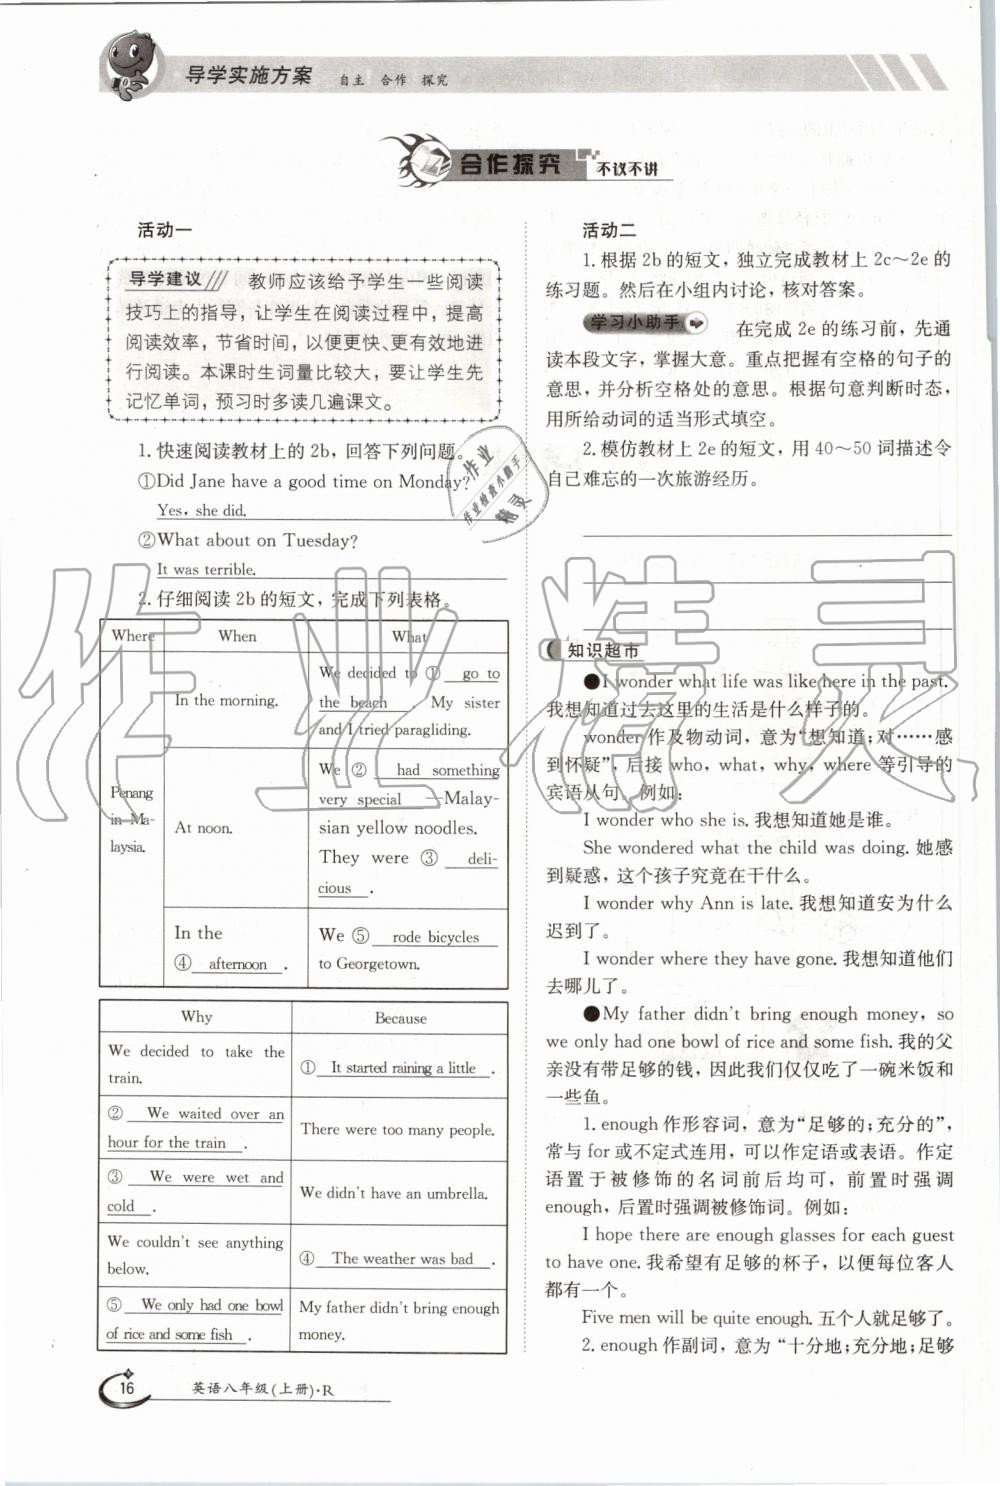 导学实施方案 自主 合作 探究
合作探究 不议不讲
活动一
导学建议 教师应该给予学生一些阅读
技巧上的指导，让学生在阅读过程中，提高
阅读效率，节省时间，以便更快、更有效地进
行阅读。本课时生词量比较大，要让学生先
记忆单词，预习时多读几遍课文。
1.快速阅读教材上的2b，回答下列问题。
①Did Jane have a good time on Monday?
Yes, she did.
②What about on Tuesday?
It was terrible.
2.仔细阅读2b的短文，完成下列表格。
Where When What
Penang
in Ma-
laysia.
In the morning.
We decided to ① go to
the beach . My sister
and I tried paragliding.
At noon.
We ② had something
very special —Malay-
sian yellow noodles.
They were ③ deli-
cious .
In the
④ afternoon .
We ⑤ rode bicycles
to Georgetown.
Why Because
We decided to take the
train.
① It started raining a little .
② We waited over an
hour for the train .
There were too many people.
③ We were wet and
cold .
We didn't have an umbrella.
We couldn't see anything
below.
④ The weather was bad .
⑤ We only had one bowl
of rice and some fish .
My father didn't bring enough
money.
16 英语八年级(上册)·R
活动二
1.根据2b的短文，独立完成教材上2c～2e的
练习题。然后在小组内讨论，核对答案。
学习小助手 在完成2e的练习前，先通
读本段文字，掌握大意。重点把握有空格的句子的
意思，并分析空格处的意思。根据句意判断时态，
用所给动词的适当形式填空。
2.模仿教材上2e的短文，用40～50词描述令
自己难忘的一次旅游经历。
知识超市
●I wonder what life was like here in the past.
我想知道过去这里的生活是什么样子的。
wonder作及物动词，意为“想知道；对……感
到怀疑”，后接who，what，why，where等引导的
宾语从句。例如：
I wonder who she is.我想知道她是谁。
She wondered what the child was doing.她感
到疑惑，这个孩子究竟在干什么。
I wonder why Ann is late.我想知道安为什么
迟到了。
I wonder where they have gone.我想知道他们
去哪儿了。
●My father didn't bring enough money, so
we only had one bowl of rice and some fish.我的父
亲没有带足够的钱，因此我们仅仅吃了一碗米饭和
一些鱼。
1.enough作形容词，意为“足够的；充分的”，
常与for或不定式连用，可以作定语或表语。作定
语置于被修饰的名词前后均可，前置时强调
enough，后置时强调被修饰词。例如：
I hope there are enough glasses for each guest
to have one.我希望有足够的杯子，以便每位客人
都有一个。
Five men will be quite enough.五个人就足够了。
2.enough作副词，意为“十分地；充分地；足够
作业
作业检查小助手
精灵
作业精灵